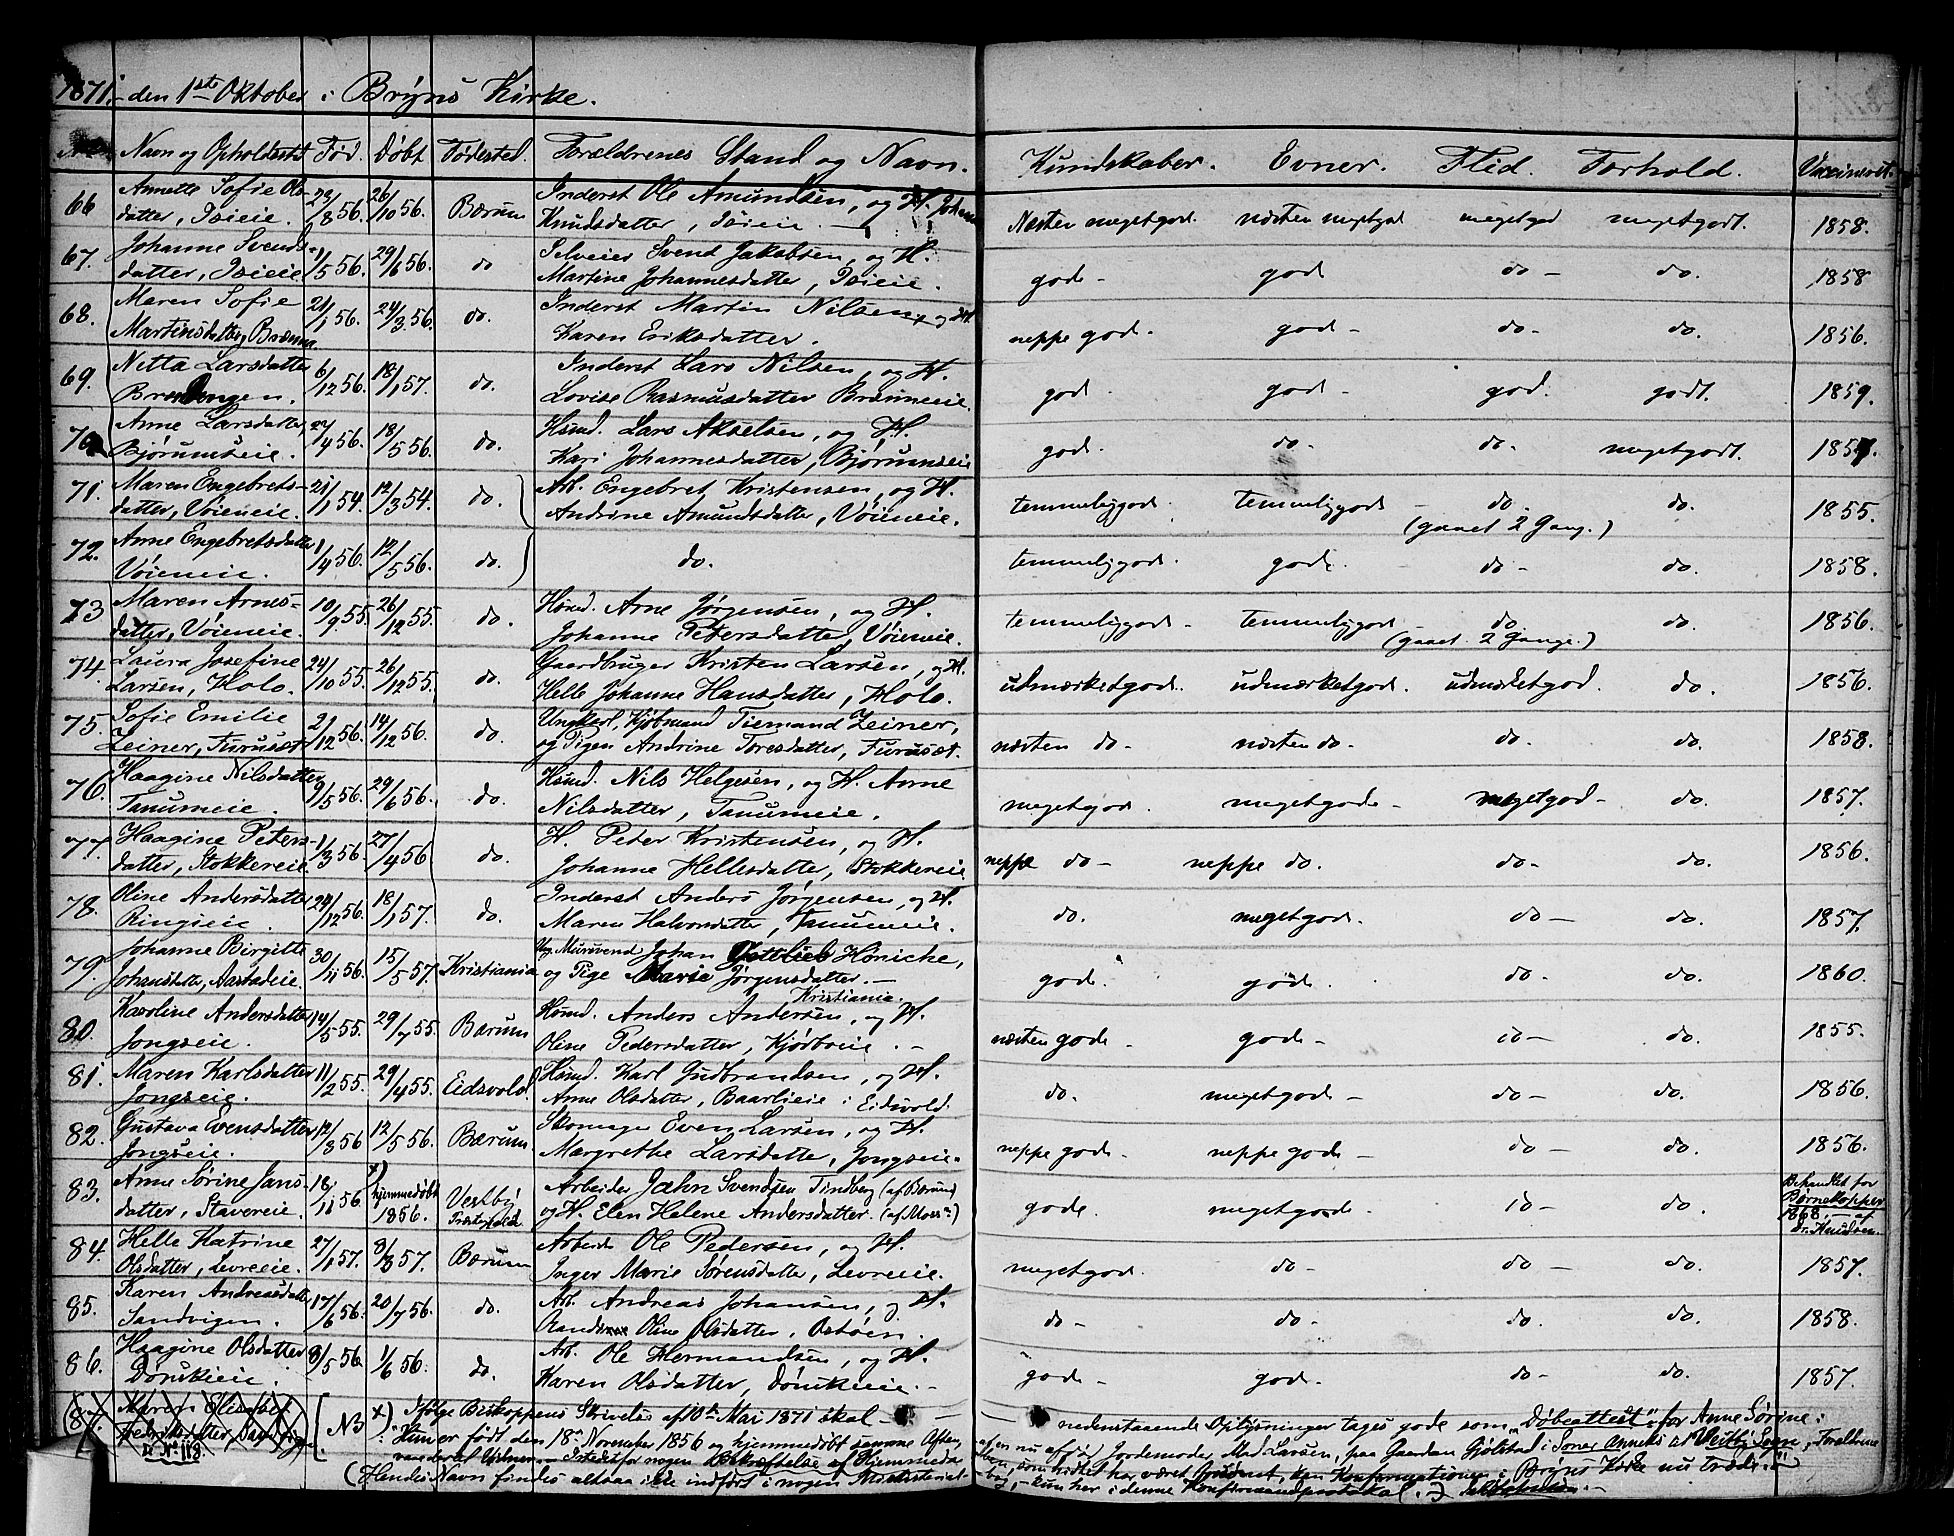 1871. den 1ste Oktober i Bryns Kirke.
Navn og Opholdssted Fød. Døbt Fødested. Forældrenes Stand og Navn. Kundskaber. Evner. Flid. Forhold. Vaccineret.
66 Annette Sofie Ols- 29/8 56. 26/10 56. Bærum Inderst Ole Amundsen, og H. Johanne Næsten megetgod. næsten megetgod megetgod megetgodt. 1858.
datter, Isieie. Knudsdatter, Isieie.
67. Johanne Svends- 1/5 56. 29/6 56. do Selveier Svend Jakobsen, og H. god- god do- do. 1858
datter, Isieie Martine Johannesdatter, Isieie.
68. Maren Sofie 21/1 56. 24/3 56. do. Inderst Martin Nilsen, og H. neppe god. god- do- do. 1856.
Martinsdatter, Brænna Karen Eriksdatter.
69. Netta Larsdatter 6/12 56. 18/1 57. do. Inderst Lars Nilsen, og H. god god- god. godt. 1859.
Brændengen. Lovise Rasmusdatter Brænneie.
70 Anne Larsdatter, 27/4 56. 18/5 56. do. Husmd. Lars Akselsen, og H. god. do- do. megetgodt.
Bjørumseie. Kari Johannesdatter, Bjørumseie
71. Maren Engebrets- 21/1 54. 12/3 54. do. Arb. Engebret Kristensen, og H. temmeliggod. temmeliggod- do. do. 1855.
datter, Vøieneie. Andrine Amundsdatter, Vøieneie. (gaaet 2 Gang.)
72. Anne Engebretsdatter 1/4 56. 12/5 56. do. do. temmeliggod. god. do- do. 1858.
Vøieneie.
73 Maren Arnes- 10/9 55. 26/12 55. do. Husmd. Arne Jørgensen, og H. temmeliggod- temmeliggod- do do. 1856.
datter, Vøieneie. Johanne Petersdatter, Vøieneie. (gaaet 2 Gange.)
74. Laura Josefine 24/10 55. 26/12 55. do. Gaardbruger Kristen Larsen, og H. udmærketgod. udmærketgod. udmærketgod. do. 1856.
Larsen, Holo. Helle Johanne Hansdatter, Holo.
75. Sofie Emilie 2/12 56. 14/12 56. do. Ungkarl, Kjøbmand Tiemand Zeiner, næsten do- næsten do. do. do. 1858.
Zeiner, Furuset og Pigen Andrine Toresdatter, Furuset.
76. Haagine Nilsdatter 9/5 56. 29/6 56. do. Husmd. Nils Helgesen, og H. Anne megetgod. megetgod- megetgod- do. 1857.
Tanumeie. Nilsdatter, Tanumeie.
77. Haagine Peters- 1/3 56. 27/4 56 do. H. Peter Kristensen, og H. neppe do- neppe do. do- do. 1856.
datter, Stokkereie. Johanne Hellesdatter, Stokkereie
78. Oline Andersdatter 24/12 56. 18/1 57. do. Inderst Anders Jørgensen, og H. do. megetgod. do- do. 1857.
Ringieie. Maren Halvorsdatter, Tanumeie.
79 Johanne Birgitte 30/11 56. 15/5 57. Kristiania Ung. Muursvend Johan Gottlieb Høniche, god. god. do- do. 1860.
og Pige Marie Jørgensdatter.- Kristiania.
80. Karoline Andersdatter 14/5 55. 29/7 55. Bærum Husmd. Anders Andersen, og H. næsten god- god- do- do. 1855.
Jongseie. Oline Pedersdatter, Kjørboeie.-
81. Maren Karlsdatter 11/2 55. 29/4 55. Eidsvold. Husmd. Karl Gudbrandsen, og H. do. megetgod- do- do. 1856.
Jongseie. Anne Olsdatter, Baarlieie i Eidsvold.
82. Gustava Evensdatter 12/3 56 12/5 56. Bærum Skomager Even Larsen, og H. neppe god- neppe god- do- do. 1856.
Jongseie. Margrethe Larsdatter, Jongseie.
83. Anne Sørine Jans- 18/11 56 x) hjemmedøbt 1856. Vestby Præstegjeld Arbeider Jæhn Svendsen Tindberg (af Bærum) god. megetgod- do- do. Behandlet for
datter, Stavereie. og H. Elen Helene Andersdatter. (af Moss) Børnekopper 1868,- af Dr. Knudsen.
84. Helle Katrine 27/1 57. 8/3 57. Bærum Arbeider Ole Pedersen, og H. megetgod. do- do- do. 1857.
Olsdatter, Levreeie. Inger Marie Sørensdatter, Levreeie.
85. Karen Andreasdatter 17/6 56. 20/7 56. do. Arb. Andreas Johansen, og H. do- do. do. do. 1858.
Sandvigen. Oline Olsdatter. Ostøen.
86. Haagine Olsdatter 8/5 56. 1/6 56. do. Arb. Ole Hermandsen, og H. god- god. do- do. 1857.
Dønskieie. Karen Olsdatter, Dønskieie.-
(87. Maren Elisabet
Sandvigen
No 113.
NB x) Ifølge Biskoppens Skrivelse af 10de Mai 1871 skal - - nedenstaaende Oplysninger tages gode som "Døbeattest" for Anne Sørine:
"Hun er født den 18de November 1856 og hjemmedøbt samme Aften, af en nu afdøde Jordemoder, Mad. Larsen, paa Gaarden Gjølstad i Soner Annex til Vestby Sogn,
(Hendes Navn findes altsaa ikke indført i nogen Ministerial- bog,- kun her i denne Konfirmandprotokol.)